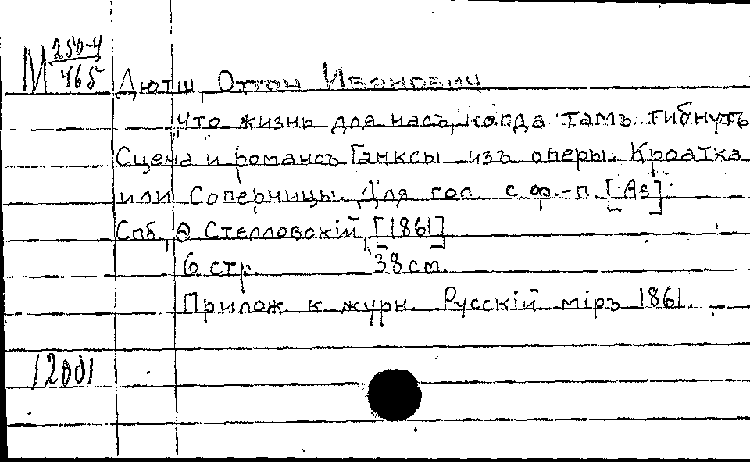 М 250-4/465
Дютш, Оттон Иванович
Что жизнь для насъ, когда тамъ гибнутъ
Сцена и романсъ Ганксы изъ оперы. Кроатка
или Соперницы. Для гол. с ф.-п. [As].
Спб, Ѳ Стелловскій, [1861]
6 стр. 38 см.
Прилож. к журн. Русскій міръ 1861.
12001